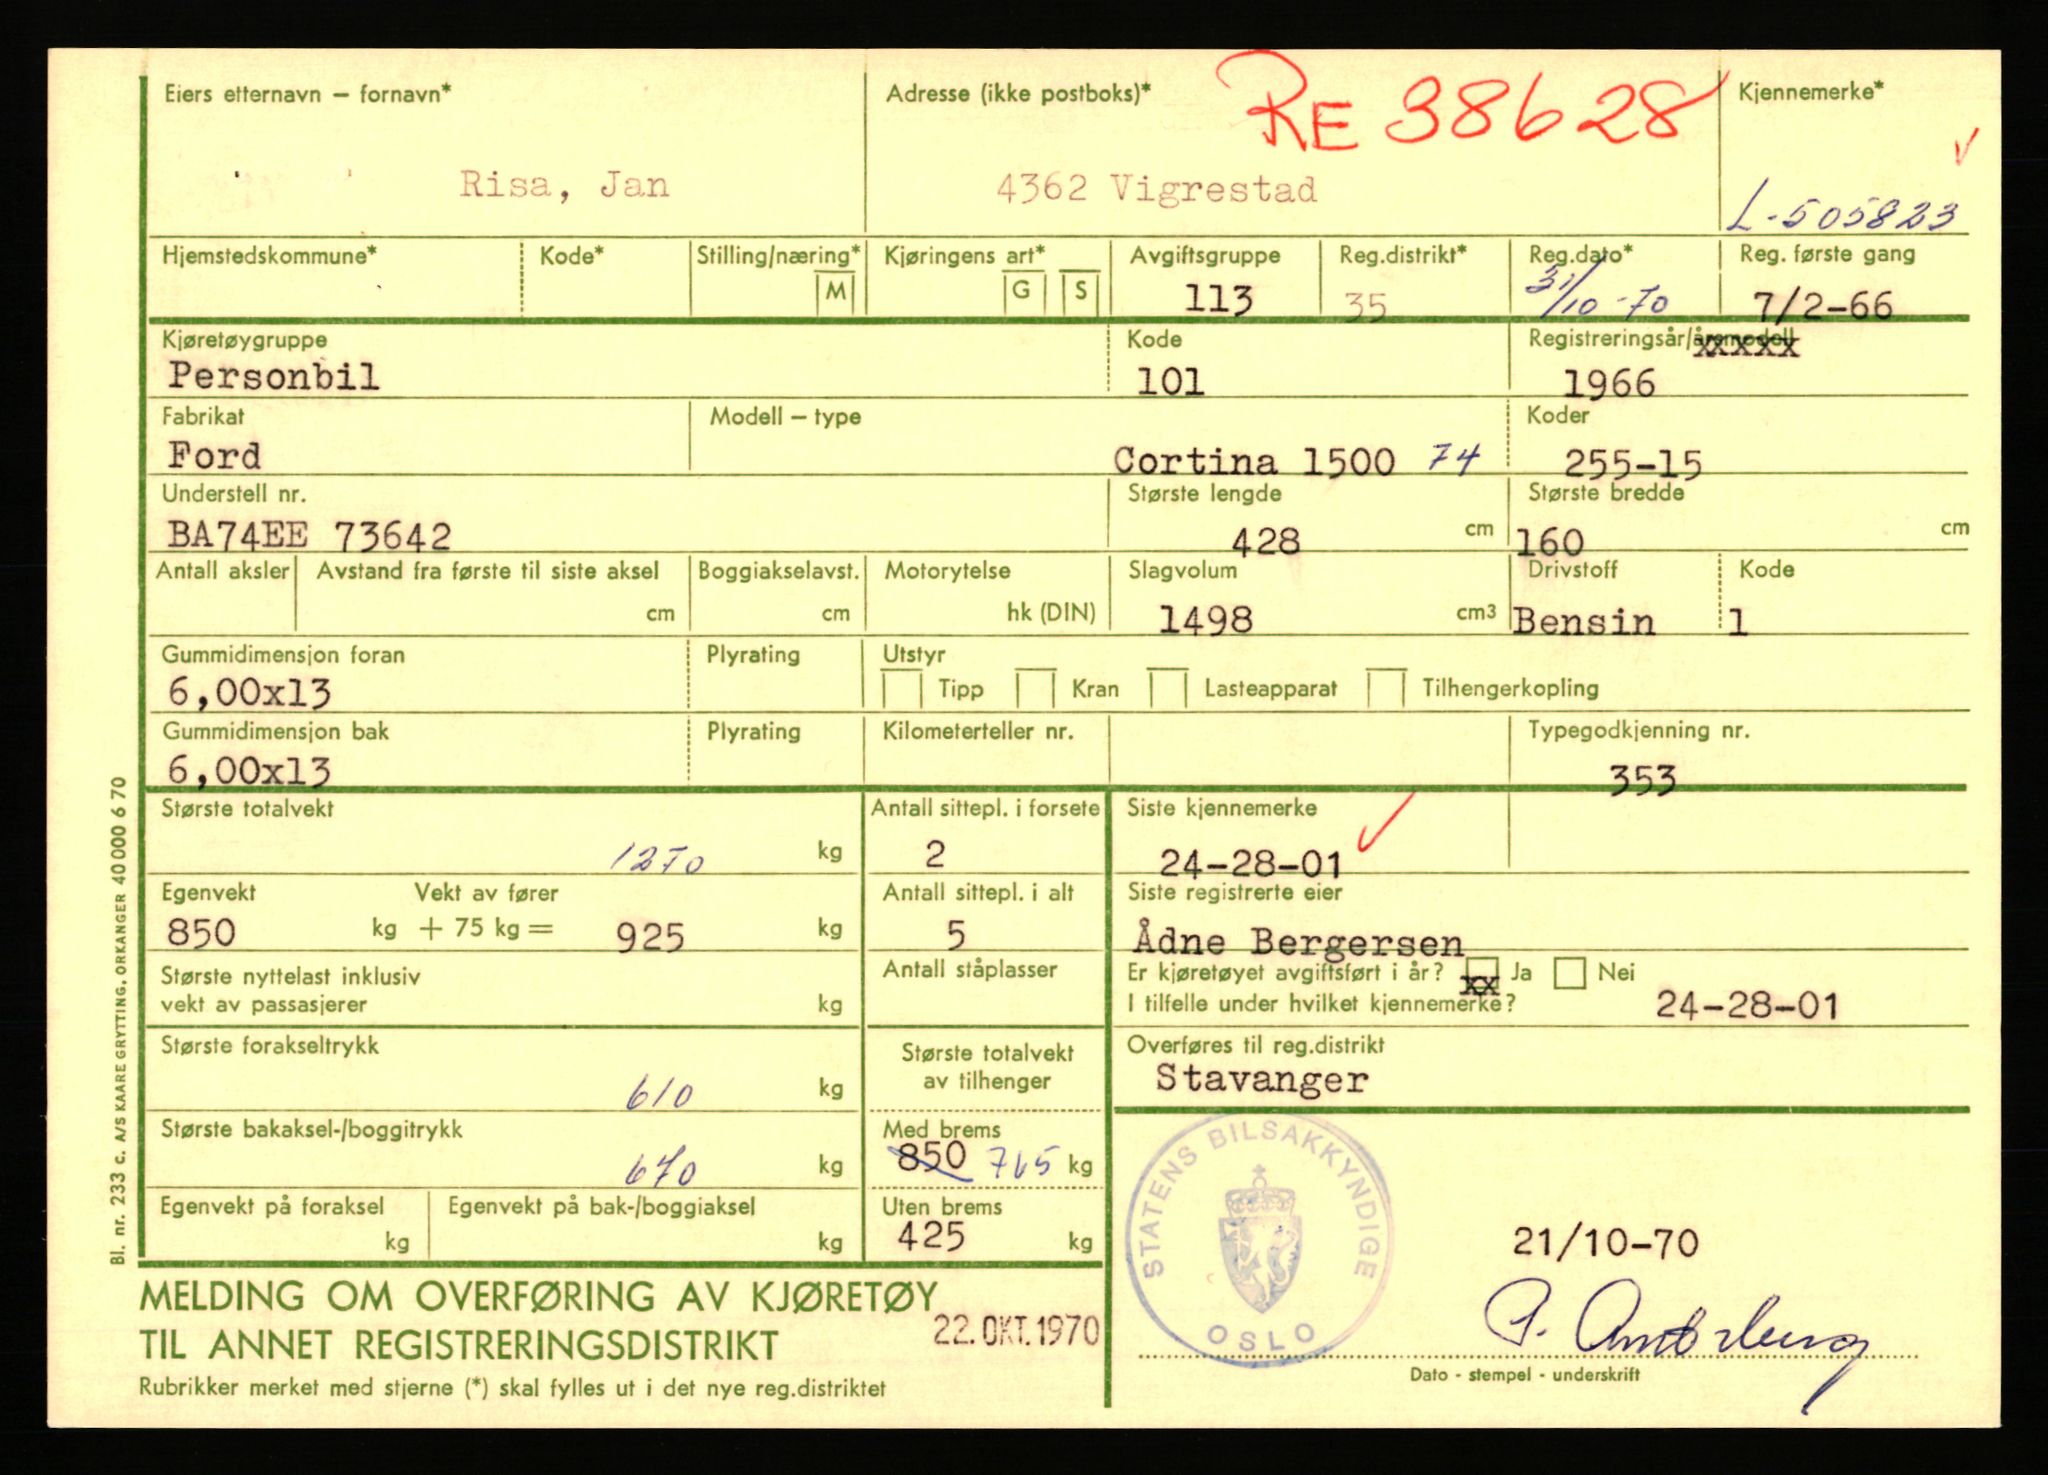 Eiers etternavn – fornavn*
Adresse (ikke postboks)*
RE 38628
Kjennemerke*
Risa, Jan
4362 Vigrestad
L-505823
Hjemstedskommune*
Kode*
Stilling/næring*
M
Kjøringens art*
G
S
Avgiftsgruppe
113
Reg.distrikt*
35
Reg.dato*
31/10-70
Reg. første gang
7/2-66
Kjøretøygruppe
Personbil
Kode
101
Registreringsår/årsmodell
xxxxx
1966
Fabrikat
Ford
Modell – type
Cortina 1500 74
Koder
255-15
Understell nr.
BA74EE 73642
Største lengde
428 cm
Største bredde
160 cm
Antall aksler
Avstand fra første til siste aksel
cm
Boggiakselavst.
cm
Motorytelse
hk (DIN)
Slagvolum
1498 cm3
Drivstoff
Bensin
Kode
1
Gummidimensjon foran
6,00x13
Plyrating
Utstyr
Tipp
Kran
Lasteapparat
Tilhengerkopling
Gummidimensjon bak
6,00x13
Plyrating
Kilometerteller nr.
Typegodkjenning nr.
353
Største totalvekt
1270 kg
Antall sittepl. i forsete
2
Siste kjennemerke
24-28-01
Egenvekt
Vekt av fører
850 kg + 75 kg = 925 kg
Antall sittepl. i alt
5
Siste registrerte eier
Ådne Bergersen
Største nyttelast inklusiv
vekt av passasjerer
kg
Antall ståplasser
Er kjøretøyet avgiftsført i år? xx Ja Nei
I tilfelle under hvilket kjennemerke? 24-28-01
Største forakseltrykk
610 kg
Største totalvekt
av tilhenger
Overføres til reg.distrikt
Stavanger
Største bakaksel-/boggitrykk
670 kg
Med brems
850 765 kg
Egenvekt på foraksel
kg
Egenvekt på bak-/boggiaksel
kg
Uten brems
425 kg
STATENS BILSAKKYNDIGE
OSLO
21/10-70
MELDING OM OVERFØRING AV KJØRETØY
TIL ANNET REGISTRERINGSDISTRIKT
22.OKT.1970
Rubrikker merket med stjerne (*) skal fylles ut i det nye reg.distriktet
Dato - stempel - underskrift
Bl. nr. 233 c. A/S KAARE GRYTTING. ORKANGER 40 000 6 70